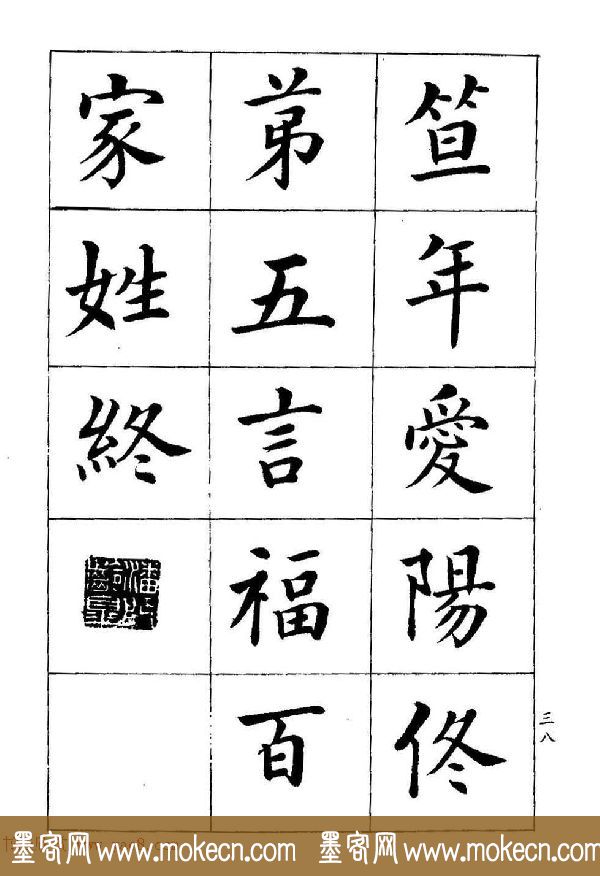 笪年愛陽佟
苐五言福百
家姓終
三八
墨客网 www.mokecn.com 墨客网 www.mokecn.com